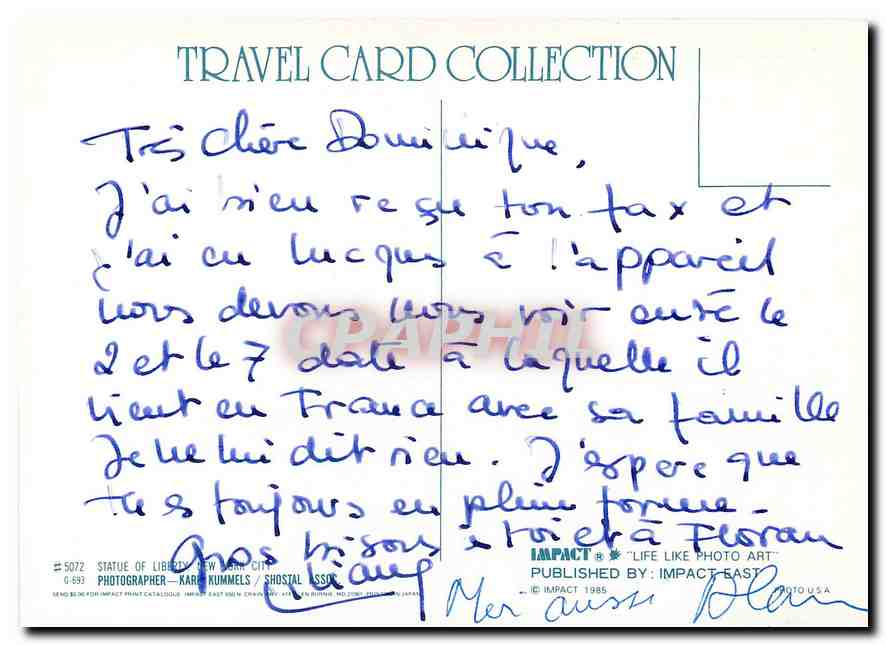 TRAVEL CARD COLLECTION
Très Chère Dominique,
J'ai bien reçu ton fax et
j'ai eu lucques à l'appareil
nous devons nous voir entre le
2 et le 7 date à laquelle il
vient en France avec sa famille
Je ne lui dit rien. J'espere que
tu es toujours en pleine forme-
Gros bisous à toi et à Floran
CPAPHIL
# 5072 STATUE OF LIBERTY, NEW YORK CITY
G-693 PHOTOGRAPHER—KARL KUMMELS / SHOSTAL ASSOC.
IMPACT ® "LIFE LIKE PHOTO ART"
PUBLISHED BY: IMPACT EAST
© IMPACT 1985 PHOTO U.S.A
Moi aussi Alain